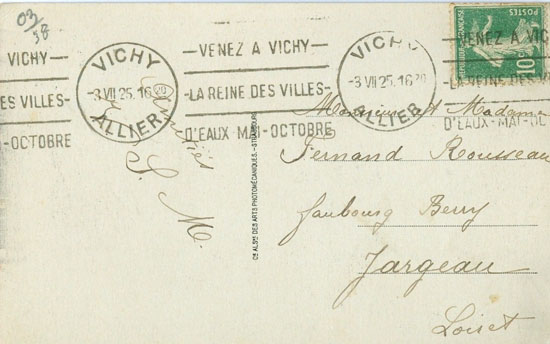 03/58
VICHY
ES VILLES-
-OCTOBRE
VICHY
-3 VII 25.16 20
ALLIER
-VENEZ A VICHY-
-LA REINE DES VILLES-
D'EAUX-MAI-OCTOBRE
VICHY
-3 VII 25.16 20
ALLIER
-VENEZ A
-LA REINE DES V
D'EAUX-MAI-OC
10
Amitiés
S. M.
Cie ALSne DES ARTS PHOTOMÉCANIQUES - STRASBOURG
Monsieur et Madame
Fernand Rousseau
faubourg Berry
Jargeau
Loiret